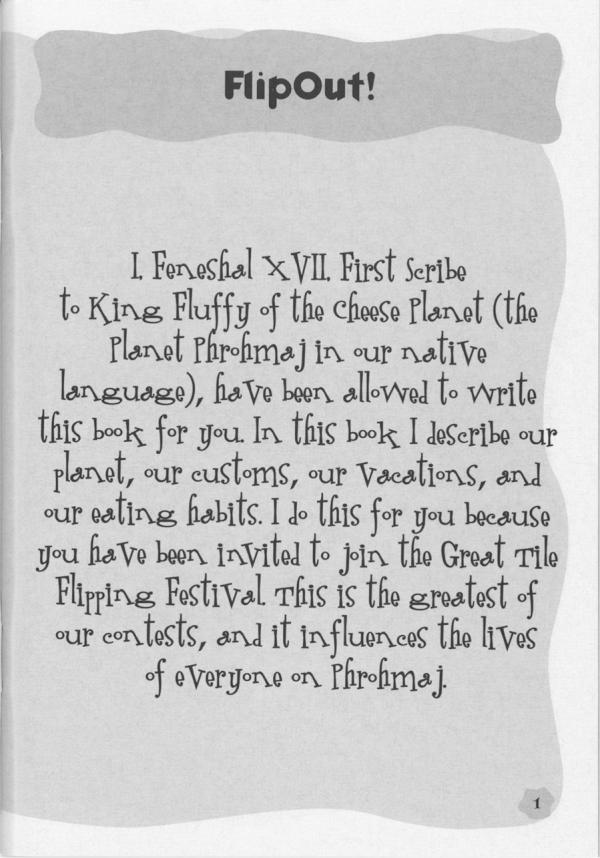 FlipOut!
I, Feneshal XVII, First Scribe
to King Fluffy of the Cheese Planet (the
Planet Phrohmaj in our native
language), have been allowed to write
this book for you. In this book I describe our
planet, our customs, our vacations, and
our eating habits. I do this for you because
you have been invited to join the Great Tile
Flipping Festival. This is the greatest of
our contests, and it influences the lives
of everyone on Phrohmaj.
1